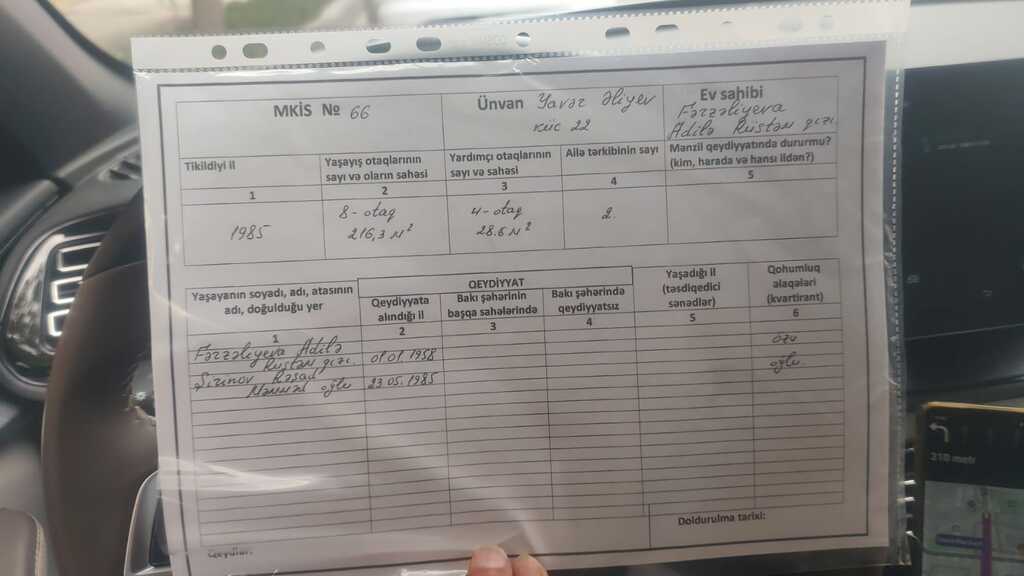 MKİS № 66
Ünvan Yavər Əliyev
küç 22
Ev sahibi
Fərzəliyeva
Adilə Rüstəm qızı
Tikildiyi il
Yaşayış otaqlarının
sayı və oların sahəsi
Yardımçı otaqlarının
sayı və sahəsi
Ailə tərkibinin sayı
Mənzil qeydiyyatında durursunuz?
(kim, harada və hansı ildən?)
1
2
3
4
5
1985
8 - otaq
216,3 м²
4 - otaq
28.6 м²
2
Yaşayanın soyadı, adı, atasının
adı, doğulduğu yer
QEYDİYYAT
Qeydiyyata
alındığı il
Bakı şəhərinin
başqa sahələrində
Bakı şəhərində
qeydiyyatsız
Yaşadığı il
(təsdiqedici
sənədlər)
Qohumluq
əlaqələri
(kvartirant)
1
2
3
4
5
6
Fərzəliyeva Adilə
Rüstəm qızı
01 01 1958
özü
Şirinov Rəşad
oğlu
23 05. 1985
oğlu
Doldurulma tarixi:
Qeydlər:
210 metr